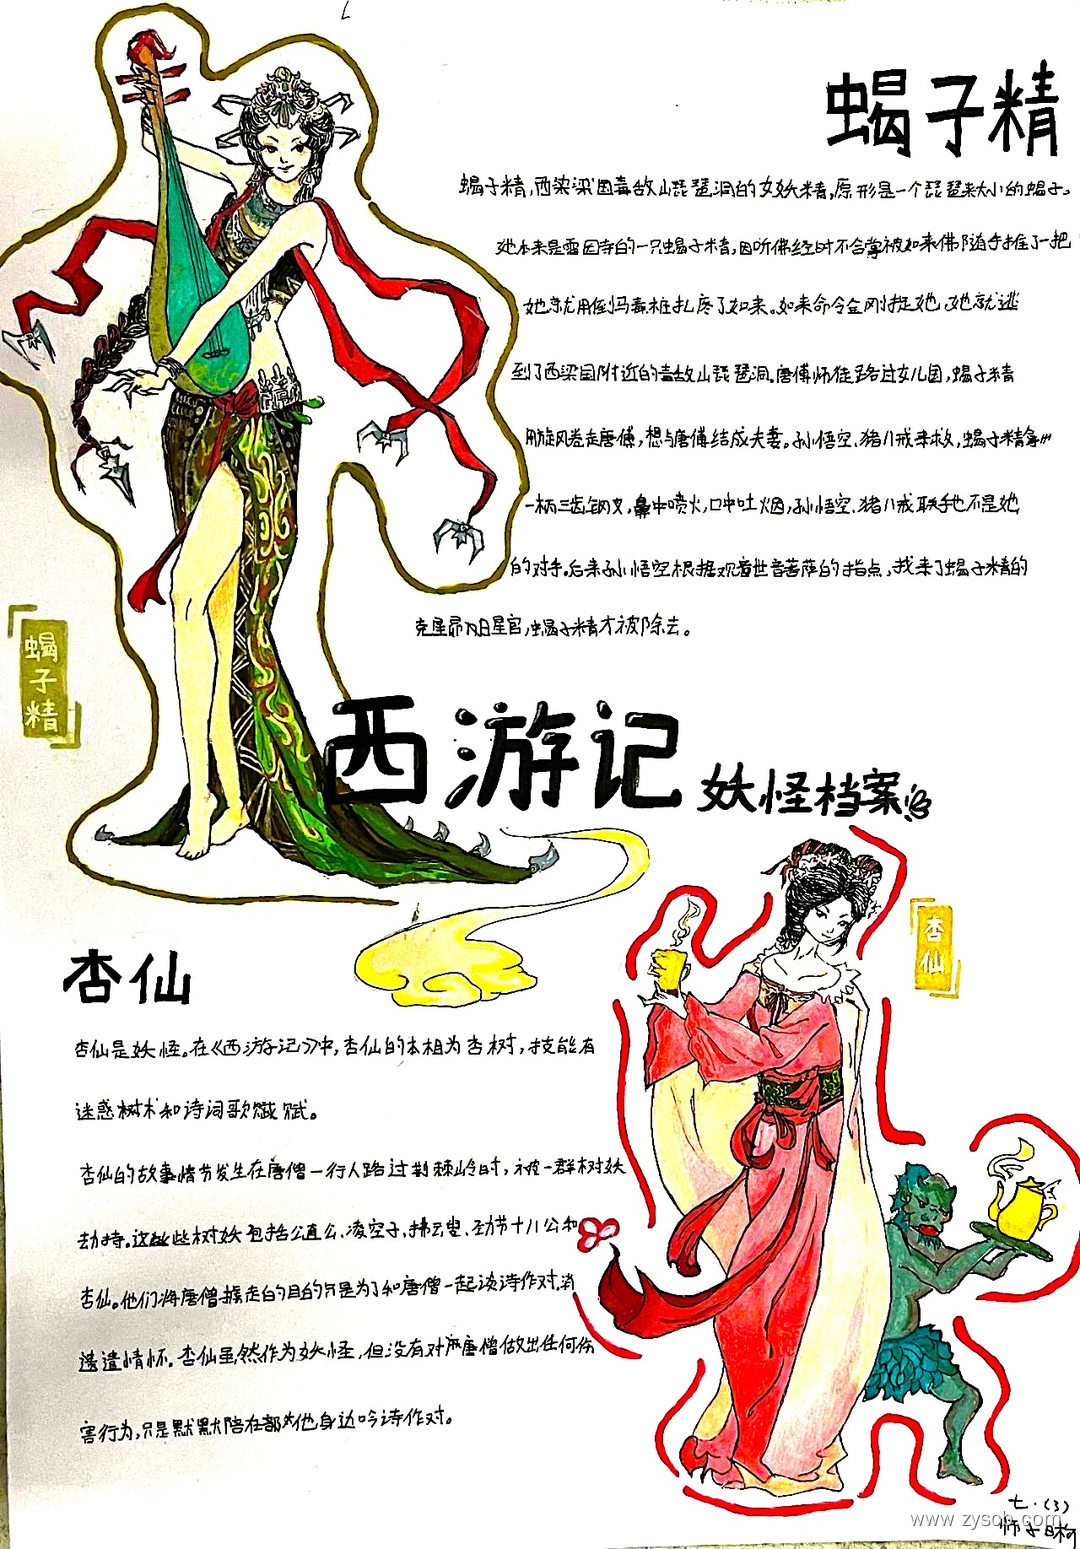 蝎子精
蝎子精,西梁国毒敌山琵琶洞的女妖精,原形是一个琵琶来大小的蝎子。
她本来是雷因寺的一只蝎子精,因听佛经时不合掌被如来佛随手推了一把
她就用倒马毒桩扎疼了如来。如来命令金刚捉她,她就逃
到了西梁国附近的毒敌山琵琶洞。唐僧师徒路过女儿国,蝎子精
用旋风卷走唐僧,想与唐僧结成夫妻。孙悟空、猪八戒来救,蝎子精拿
一柄三齿钢叉,鼻中喷火,口中吐烟,孙悟空、猪八戒联手也不是她
的对手。后来孙悟空根据观音世音菩萨的指点,找来了蝎子精的
克星昴日星官,蝎子精才被除去。
蝎子精
西游记
妖怪档案
杏仙
杏仙
杏仙是妖怪。在《西游记》中,杏仙的本相为杏树,技能有
迷惑树术和诗词歌赋。
杏仙的故事情节发生在唐僧一行人路过荆棘岭时,被一群树妖
劫持。这些树妖包括公直公、凌空子、拂云叟、劲节十八公和
杏仙。他们将唐僧掳走的目的只是为了和唐僧一起谈诗作对,消
遣情怀。杏仙虽然作为妖怪,但没有对唐僧做出任何伤
害行为,只是默默陪在他身边吟诗作对。
七·(3)
www.zysob.com